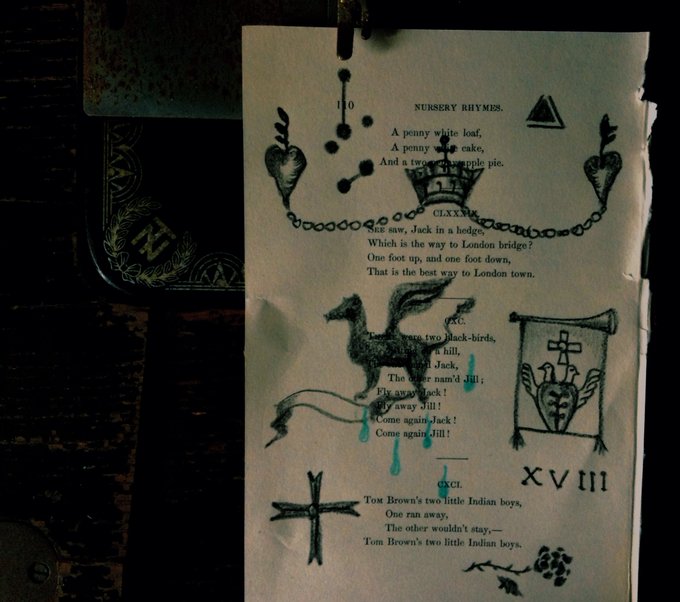 110 NURSERY RHYMES.
A penny white loaf,
A penny white cake,
And a two-penny apple pie.
CLXXXIX.
SEE saw, Jack in a hedge,
Which is the way to London bridge?
One foot up, and one foot down,
That is the best way to London town.
CXC.
were two black-birds,
a hill,
Jack,
The other nam'd Jill;
Fly away Jack!
Fly away Jill!
Come again Jack!
Come again Jill!
XVIII
CXCI.
TOM Brown's two little Indian boys,
One ran away,
The other wouldn't stay,—
Tom Brown's two little Indian boys.